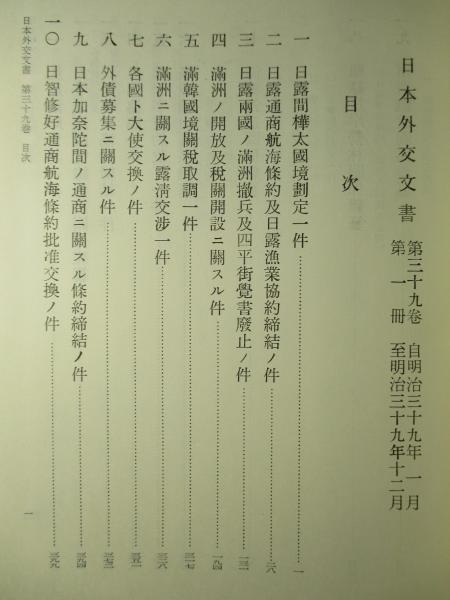 日本外交文書 第三十九卷 自明治三十九年一月
第一冊 至明治三十九年十二月
目次
一 日露間樺太國境劃定一件 一
二 日露通商航海條約及日露漁業協約締結ノ件 二六
三 日露兩國ノ滿洲撤兵及四平街覺書廢止ノ件 一三一
四 滿洲ノ開放及税關開設ニ關スル件 一九四
五 滿韓國境關税取調一件
六 滿洲ニ關スル露淸交涉一件
七 各國ト大使交換ノ件
八 外債募集ニ關スル件
九 日本加奈陀間ノ通商ニ關スル條約締結ノ件 三九四
一〇 日智修好通商航海條約批准交換ノ件 三九九
日本外交文書 第三十九卷 目次
一